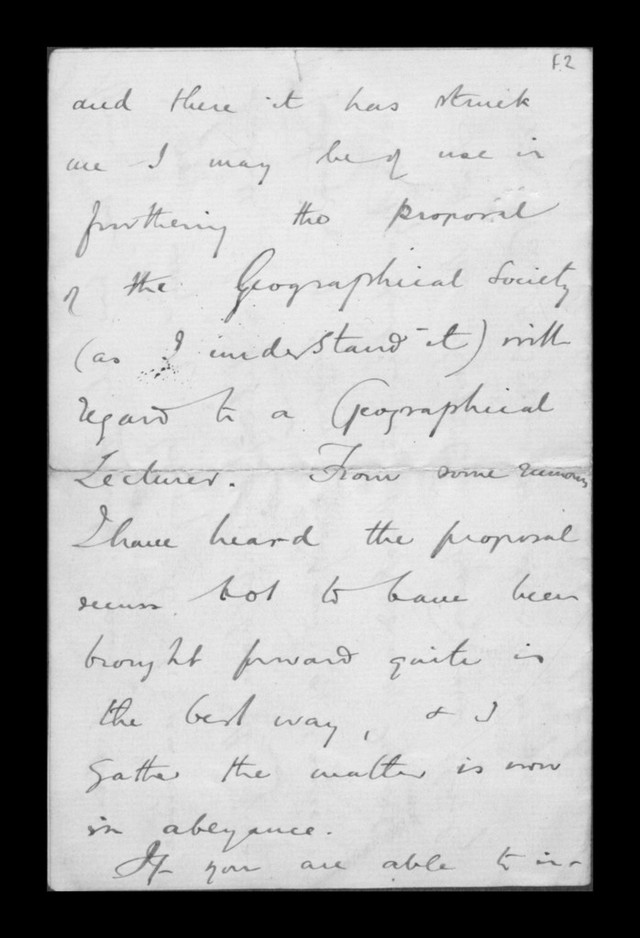 f.2
and there it has struck
me I may be of use in
furthering the proposal
of the Geographical Society
(as I understand it) with
regard to a Geographical
Lecturer. From some rumours
I have heard the proposal
seems not to have been
brought forward quite in
the best way, & I
gather the matter is now
in abeyance.
If you are able to in-